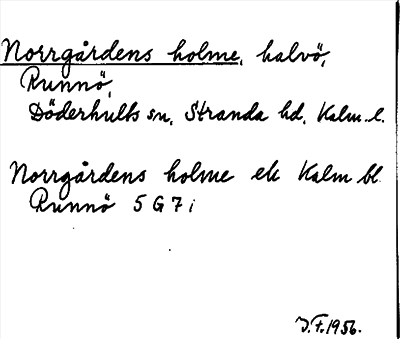 Norrgårdens holme, halvö,
Runnö,
Döderhults sn, Stranda hd, Kalm. l.
Norrgårdens holme ek Kalm bl.
Runnö 5 G 7 i
J.F. 1956.